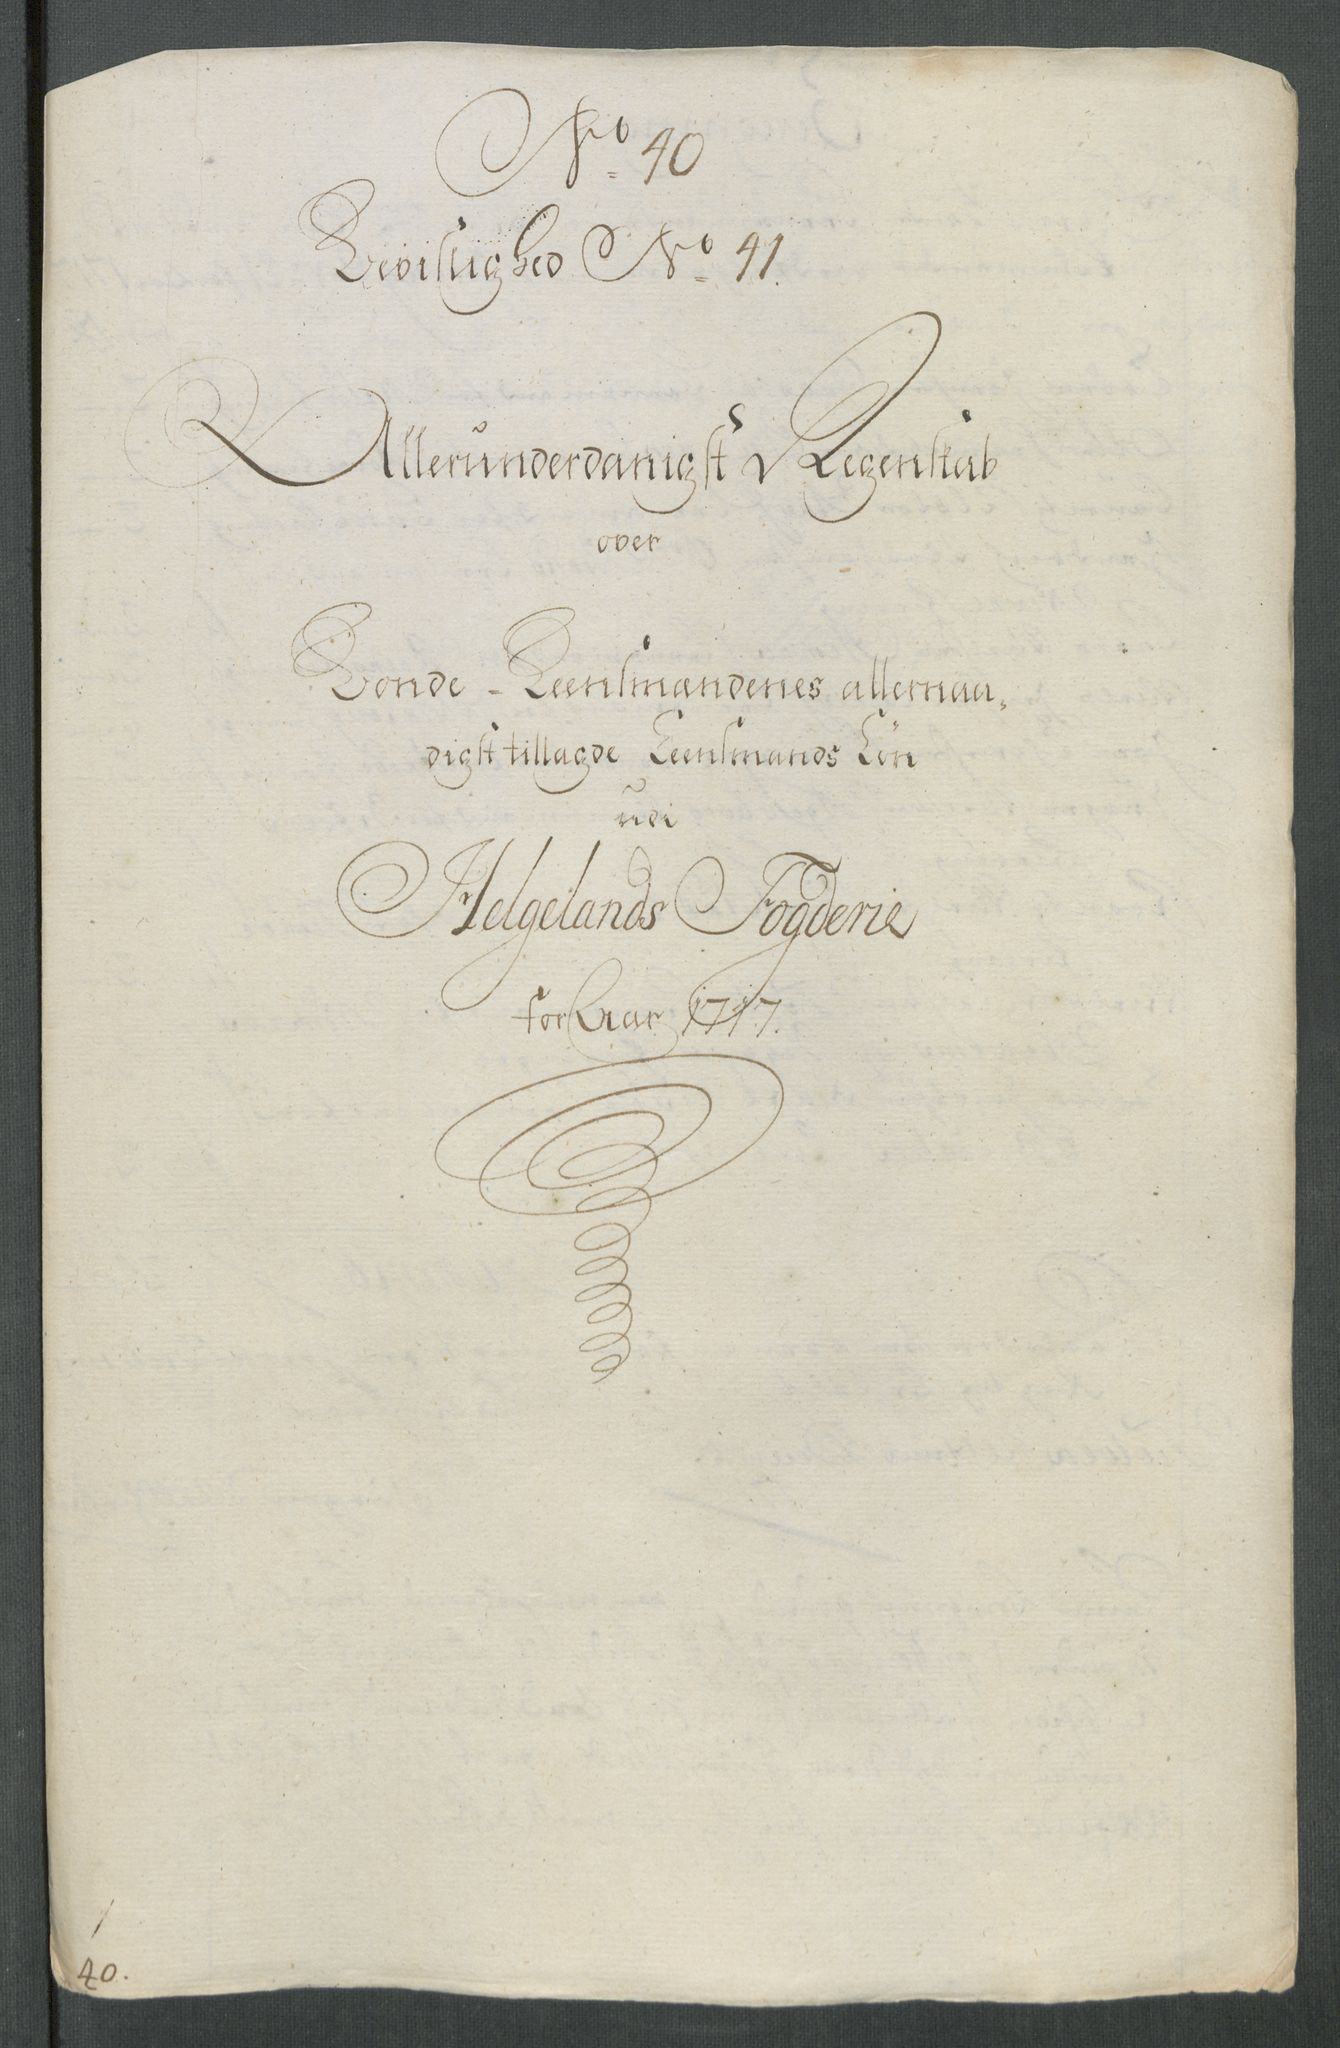 No. 40
Bevislighed No. 41.
Allerunderdanigst Regenskab
over
Bonde-Leensmændenes allernaa„
digst tillagde Leensmands Løn
udi
Helgelands Fogderie
for Aar 1717.
1
40.